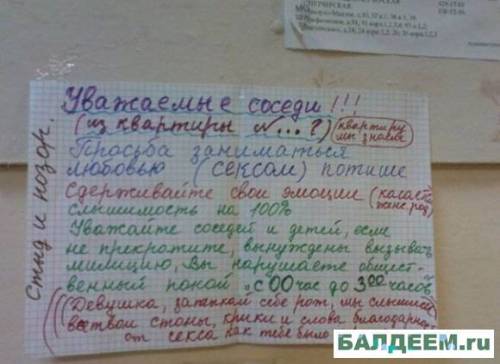 Уважаемые соседи!!!
(из квартиры №...?) (квартиру мы знаем)
Просьба заниматься
любовью (сексом) потише
Сдерживайте свои эмоции
слышимость на 100%
Уважайте соседей и детей, если
не прекратите, вынуждены вызывать
милицию, Вы нарушаете общест-
венный покой с 00 час до 3 00 часов
Девушка, заткни себе рот, мы слышим
все твои стоны, крики и слова
от секса как тебе было
Стыд и позор.
БАЛДЕЕМ.ru